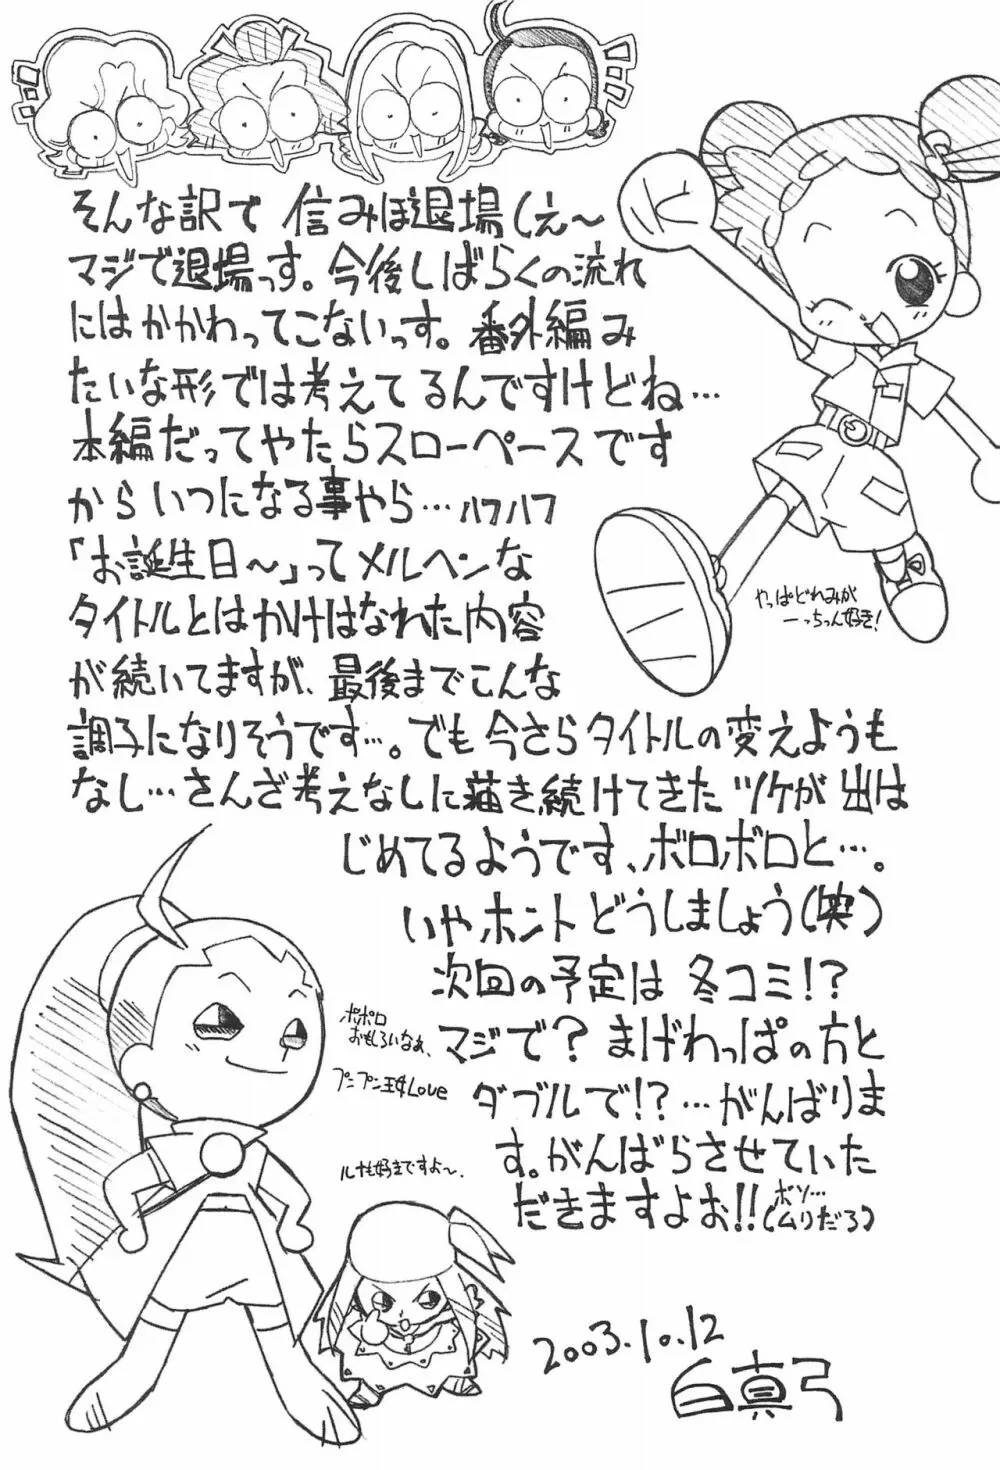 そんな訳で 信みほ退場しえ～
マジで退場っす。今後しばらくの流れ
にはかかわってこないっす。番外編み
たいな形では考えてるんですけどね…
本編だってやたらスローペースです
から いつになる事やら…ハフハフ
「お誕生日～」ってメルヘンな
タイトルとはかけはなれた内容
が続いてますが、最後までこんな
調子になりそうです…。でも今さらタイトルの変えようも
なし…さんざ考えなしに描き続けてきたツケが出は
じめてるようです、ボロボロと…。
いやホントどうしましょう(笑)
次回の予定は 冬コミ!?
マジで？まげわっぱの方と
ダブルで!?…がんばりま
す。がんばらさせていた
だきますよお!!(ボソ…ムリだろ)
やっぱどれみが
一っちっん好き!
ポポロ
おもしろいなぁ、
プニプニ王女Love
ルナも好きですよ～.
2003.10.12
白真弓